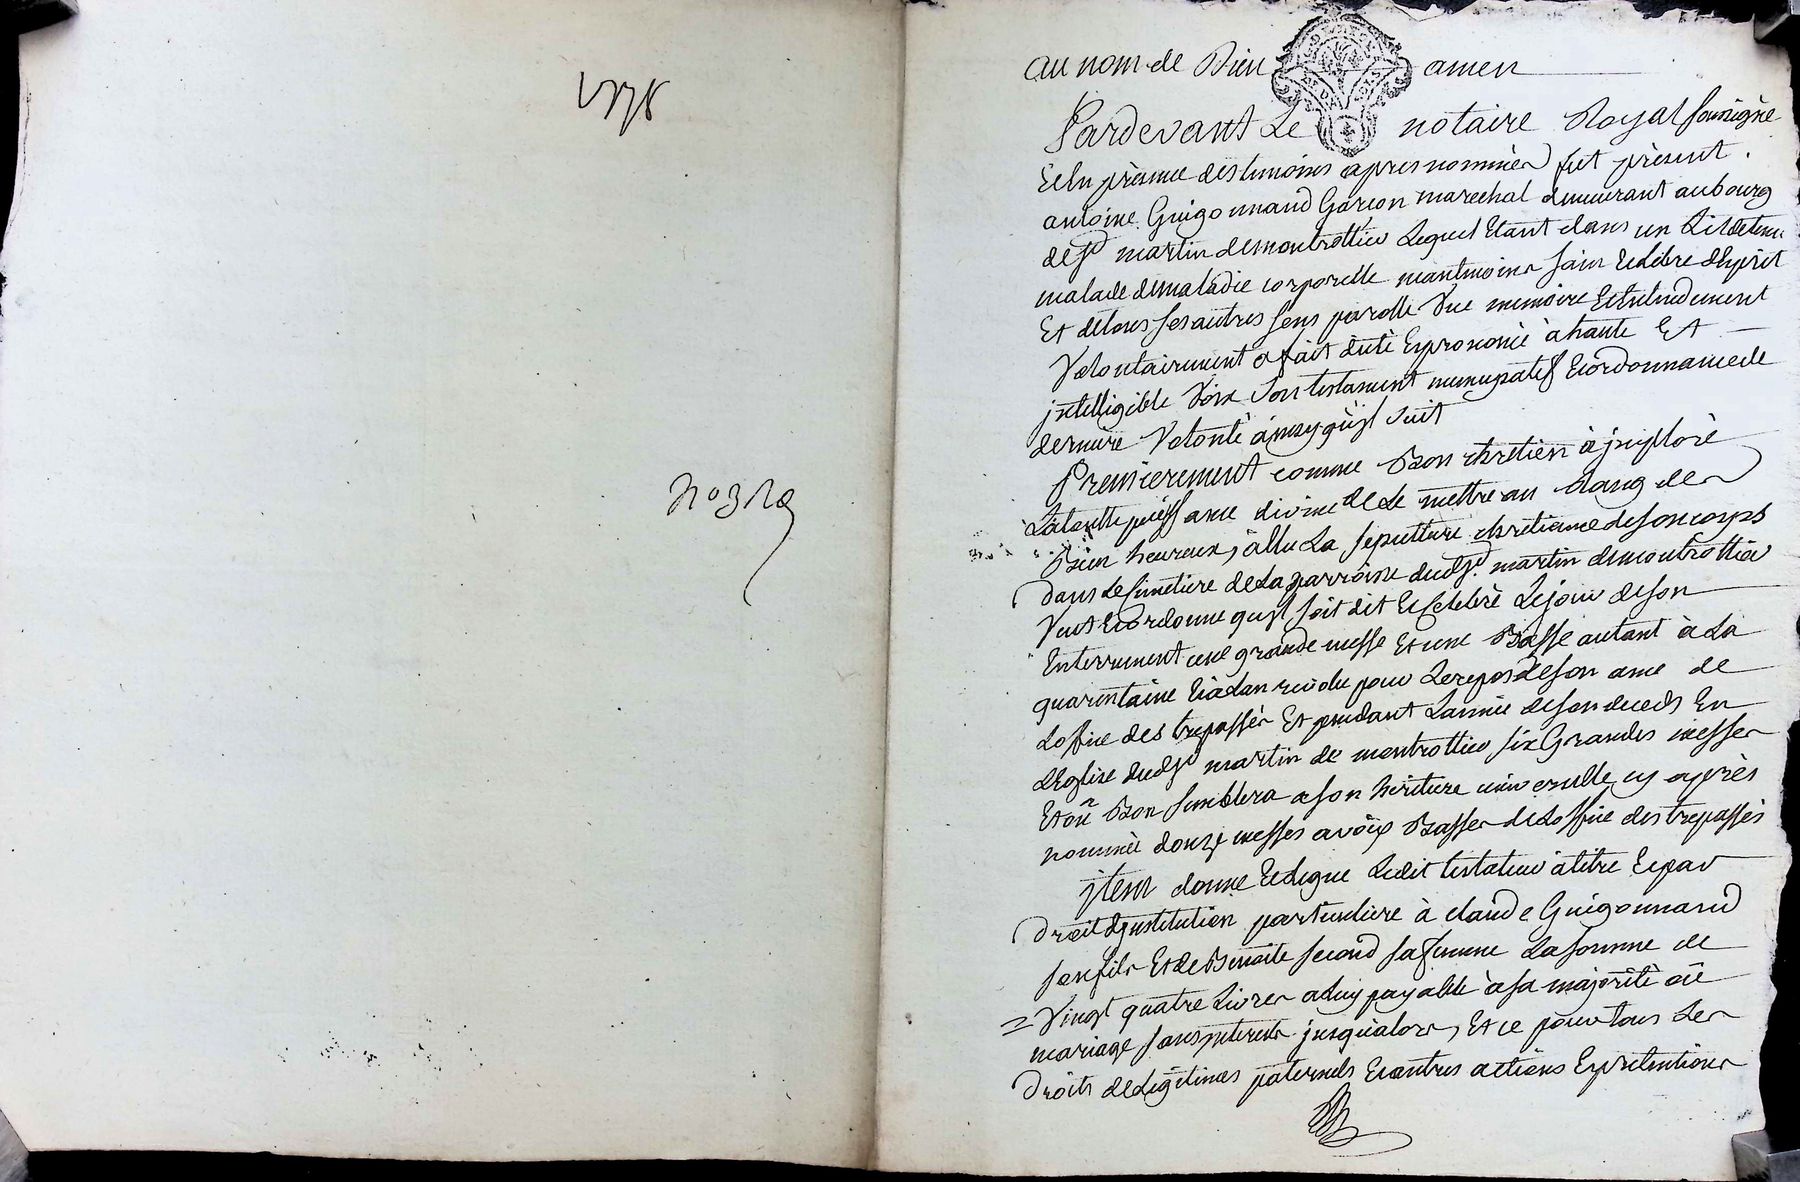 1778
au nom de Dieu amen
Pardevant Le notaire Royal soussigné
Et En présence des temoins apres nommés fut présent
antoine Guigonnand Garçon marechal demeurant au bourg
de St martin de montrottier Lequel Etant dans un Lit detenu
malade de maladie corporelle neantmoins sain Et Libre d'Esprit
Et de tous ses autres sens parolle Vue memoire Et Entendement
Volontairement a fait dicté Et prononcé à haute Et
jntelligible Voix Son testament nuncupatif Et ordonnance de
derniere Volonté ainsy qu'jl suit
Premierement comme Bon chretien à jmploré
La toutte puissance divine de Le mettre au Rang des
Bien heureux, à Elu La sepulture chretienne de son corps
dans Le simetiere de La parroisse dud St martin de montrottier
Veut Et ordonne qu'jl soit dit Et Celebré Le jour de son
Enterrement une grande messe Et une Basse autant à La
quarentaine Et à Lan revolu pour Le repos de son ame de
Loffice des trepassés Et pendant Lannée de son deceds En
LEglise dud St martin de montrottier six Grandes messes
Et où Bon semblera a son heritiere universelle cy après
nommée douze messes a voix Basses de Loffice des trepassés
jtem donne Et Legue Ledit testateur à titre Et par
droit d'jnstitution particuliere à claude Guigonnand
son fils Et de Benoite second sa femme La somme de
Vingt quatre Livres a Luy payable à sa majorité où
mariage sans jnterets jusqu'alors, Et ce pour tous Les
droits de Légitimes paternels Et autres actions Et prétentions